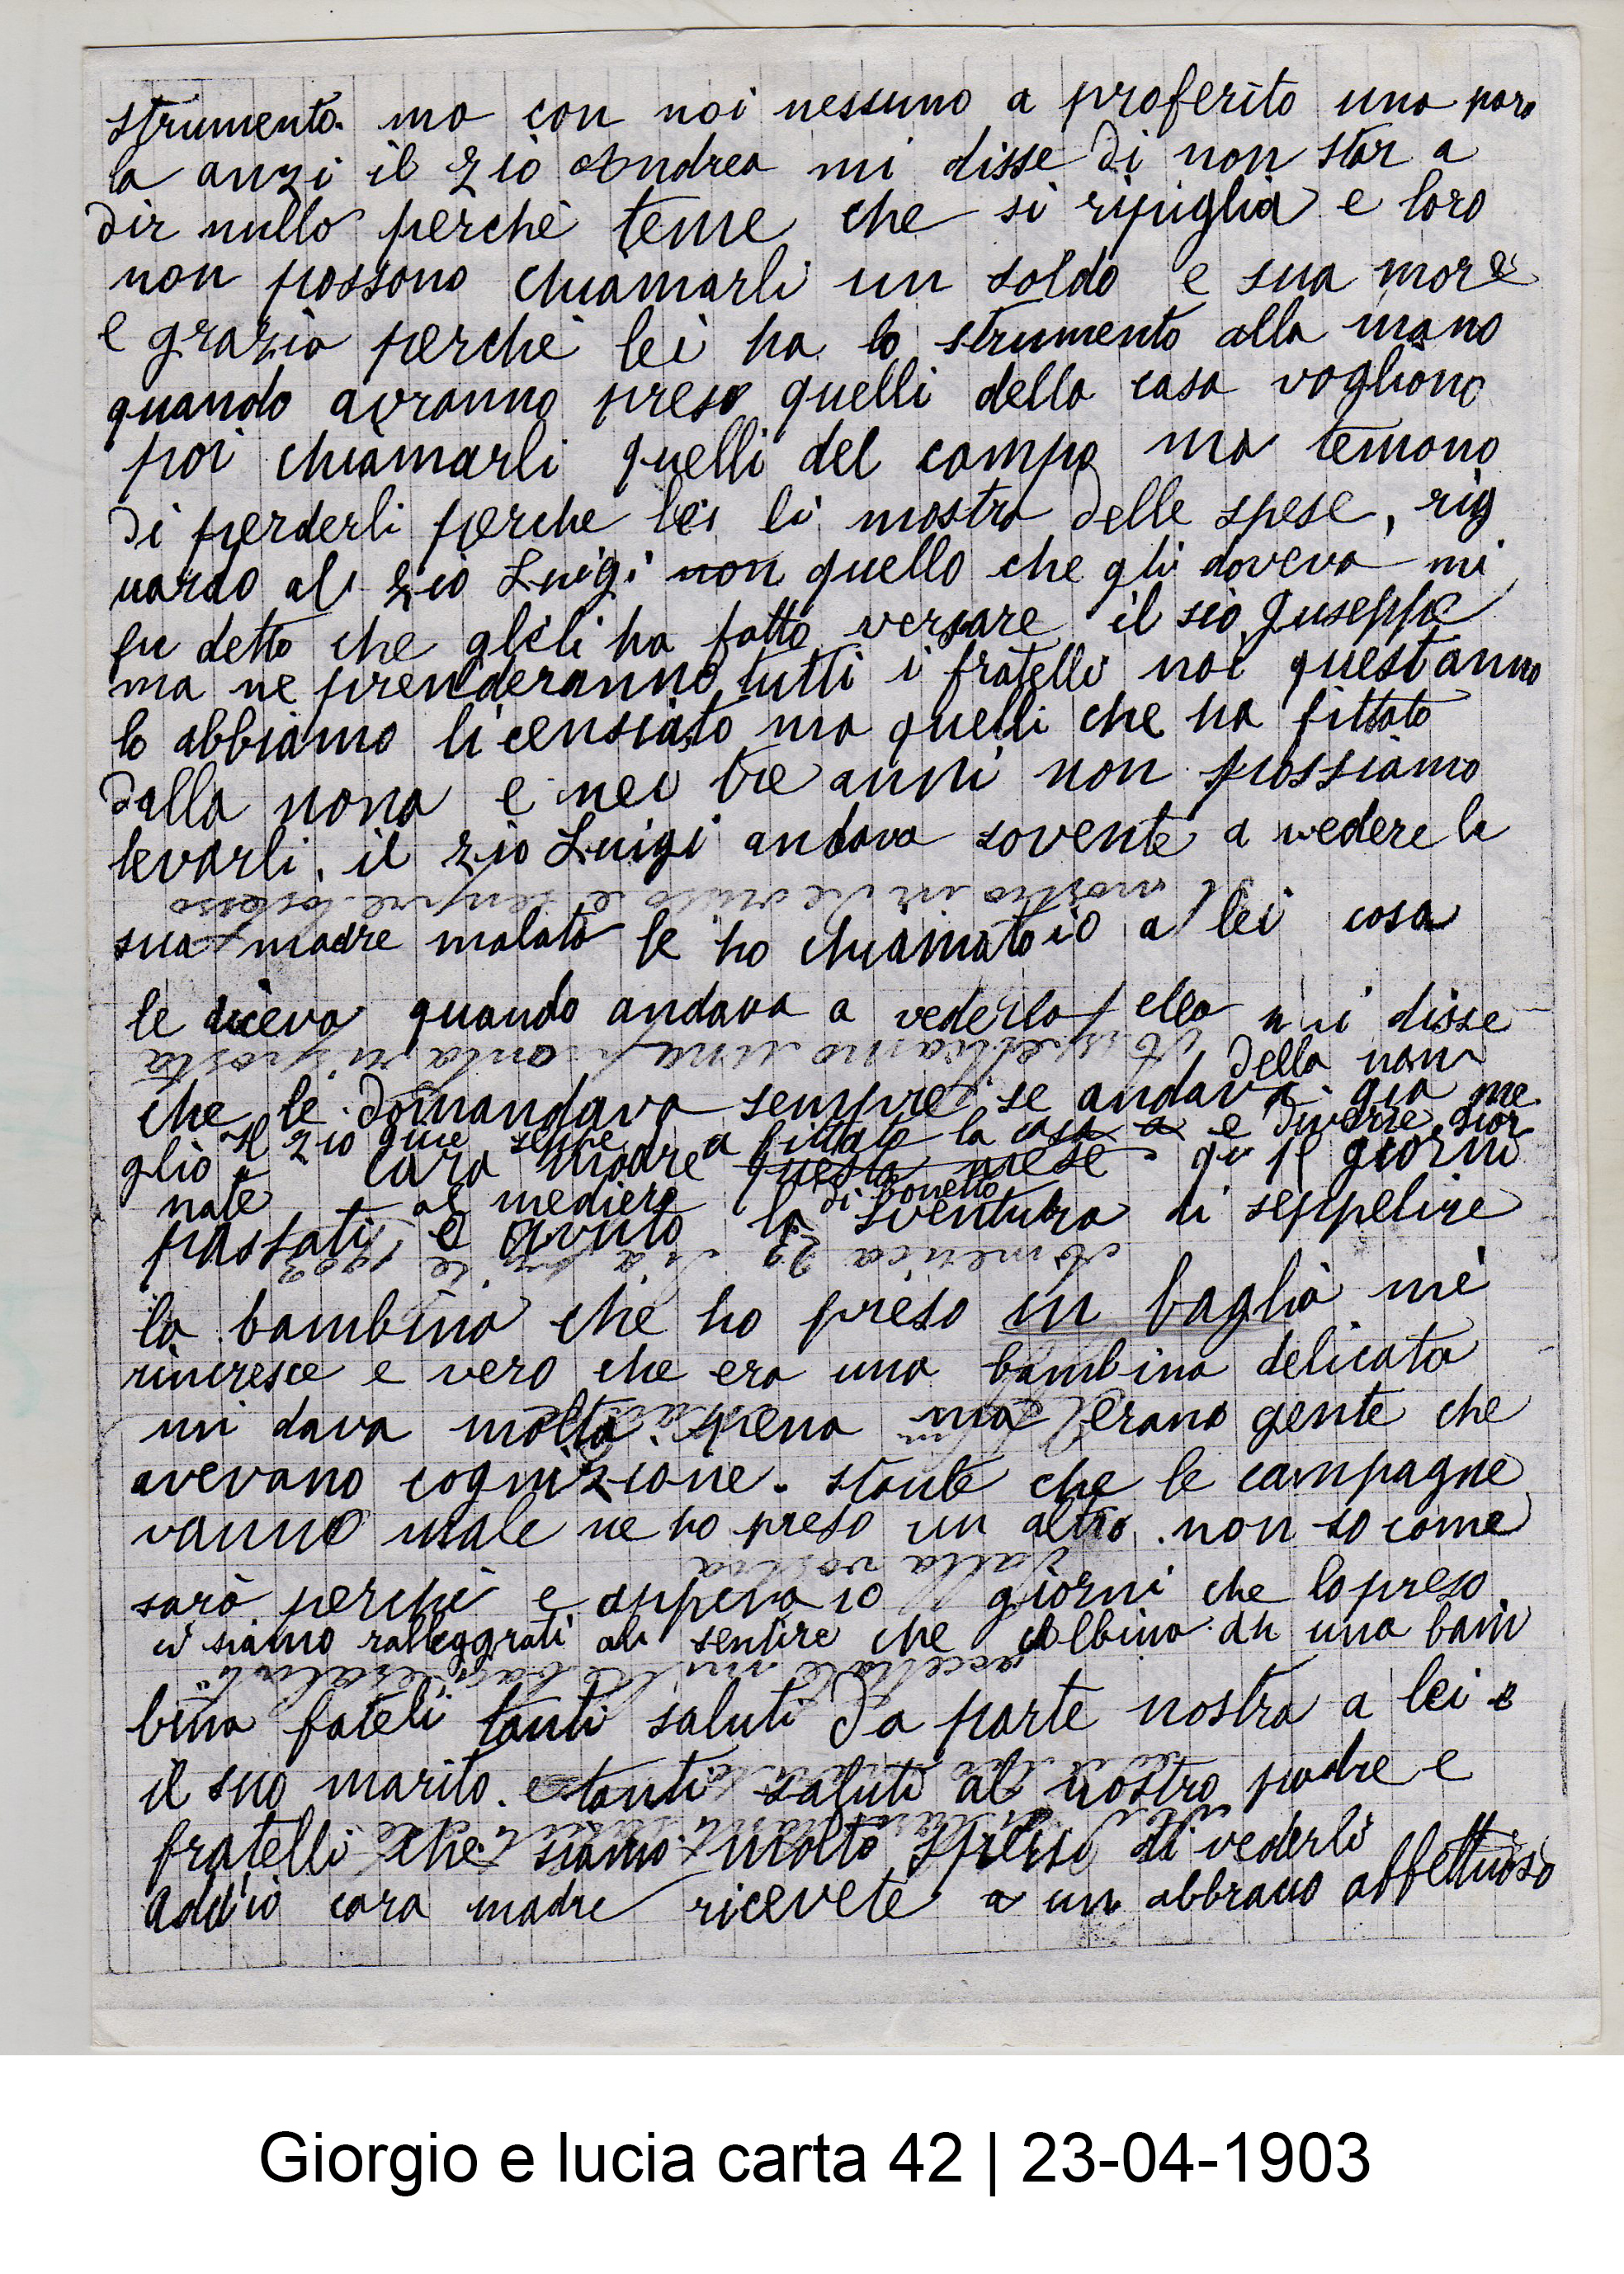 strumento. ma con noi nessuno a proferito una paro
la anzi il zio Andrea mi disse di non star a
dir nullo perchè teme che si ripiglia e loro
non possono chiamarli un soldo e sua more
e grazia perche lei ha lo strumento alla mano
quando avranno preso quelli della casa vogliono
poi chiamarli quelli del campo ma temono
di perderli perche lei li mostra delle spese, rig
uardo al zio Luigi non quello che gli doveva mi
fu detto che glieli ha fatto versare il sio Giuseppe
ma ne prenderanno tutti i fratelli noi questanno
lo abbiamo licensiato ma quelli che ha fittato
dalla nona e nei tre anni non possiamo
levarli. il zio Luigi andava sovente a vedere la
mostro in sempre
sua madre malata le ho chiamato io a lei cosa
le diceva quando andava a vederla ella mi disse
Aspettiamo una pronta risposta
della non
che le domandava sempre se andava gia me
Il zio Giuseppe a fittato la casa a e diverse gior
glio cara madre questo mese qui p giorni
nate al mediero di bonetto
passati e avuto la sventura di seppelire
America 23 1903
la bambina che ho preso in baglia mi
rincresce e vero che era una bambina delicata
mi dava molta pena ma erano gente che
avevano cognizione. stante che le campagne
vanno male ne ho preso un altro. non so come
dalla vostra
sarà perchè e appena 10 giorni che lo preso
ci siamo ralleggrati al sentire che Albina an una bam
accettate mille saluti
bina fateli tanti saluti da parte nostra a lei e
il suo marito. e tanti saluti al nostro padre e
fratelli che siamo molto spersi di vederli
addio cara madre ricevete a un abbracio affettuoso
Giorgio e lucia carta 42 | 23-04-1903